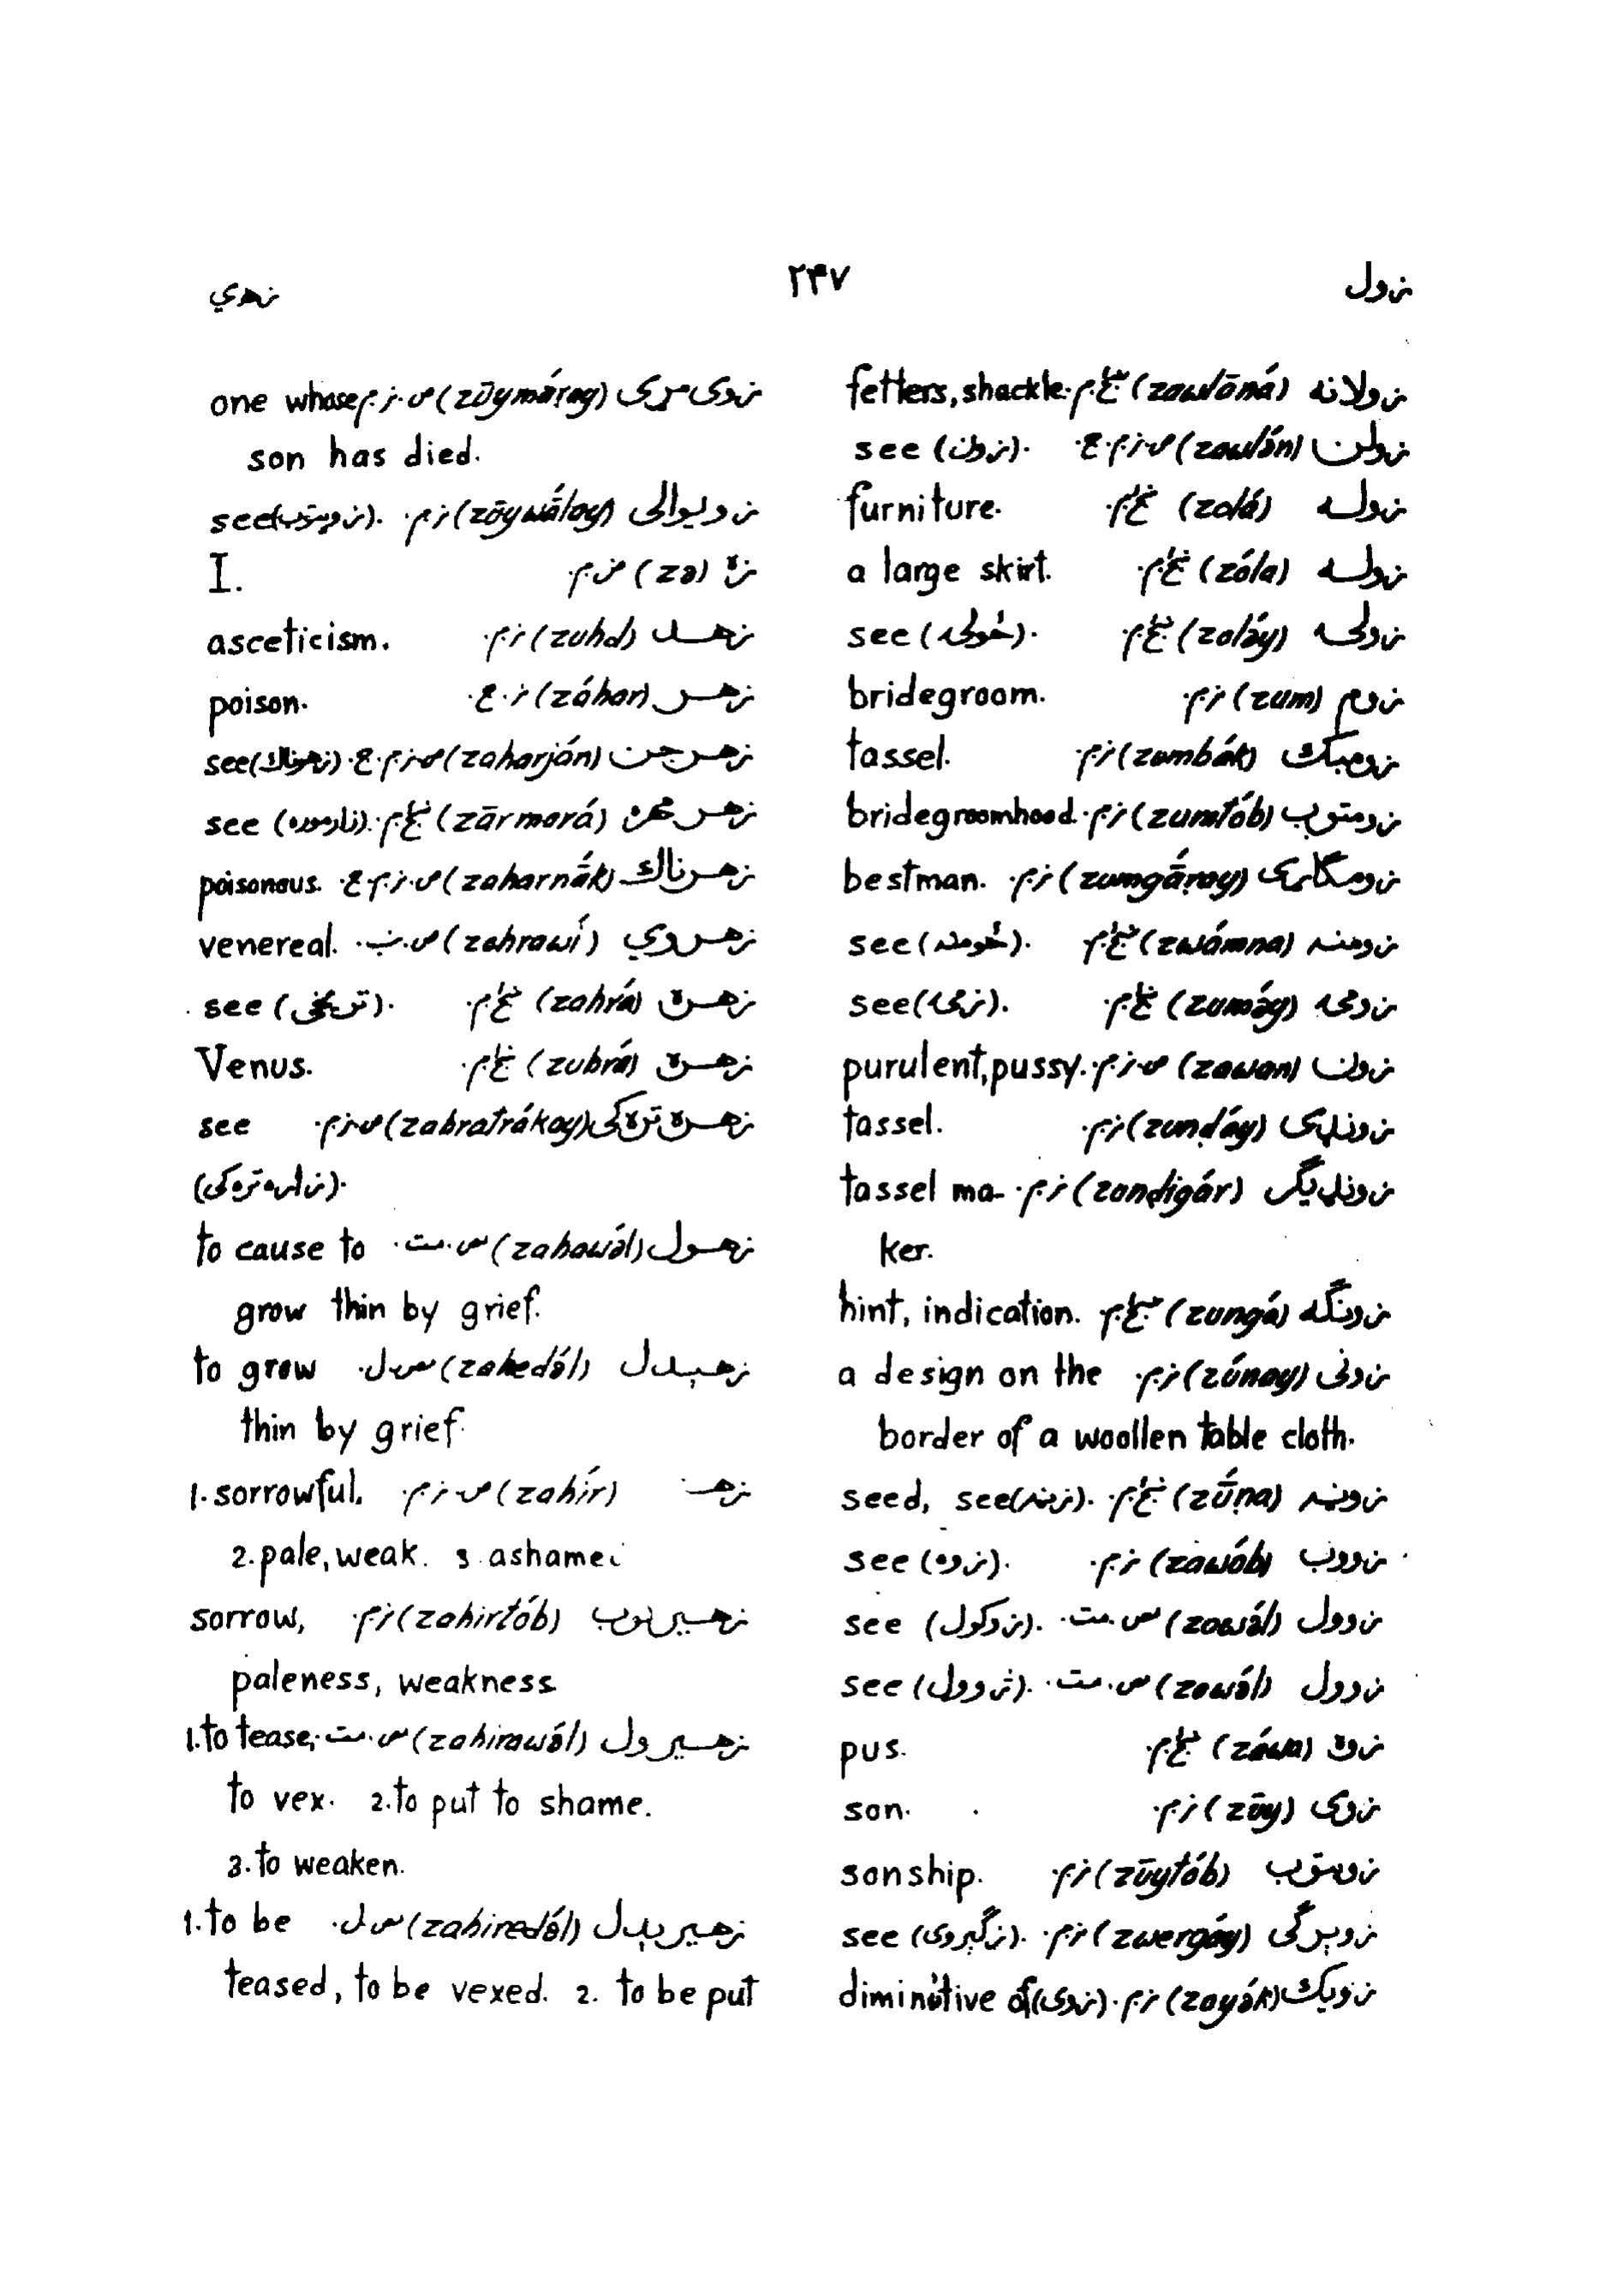 زول
۲۴۷
زهري
زولانه (zawlāná) ښځ.م. fetters, shackle.
زولن (zawlə́n) ص.نر.م.ج. see (زون).
زوله (zolá) ښځ.م. furniture.
زوله (zóla) ښځ.م. a large skirt.
زولۍ (zolə́y) ښځ.م. see (ځولۍ).
زوم (zum) نر.م. bridegroom.
زومبک (zumbák) نر.م. tassel.
زومتوب (zumtób) نر.م. bridegroomhood.
زومګاړی (zumgā́ṛay) نر.م. bestman.
زومنه (zwámna) ښځ.م. see (ځومنه).
زومۍ (zumə́y) ښځ.م. see (زمۍ).
زون (zawən) ص.نر.م. purulent, pussy.
زونډی (zunḍáy) نر.م. tassel.
زونډيګر (zonḍigár) نر.م. tassel ma-
ker.
زونګه (zungá) ښځ.م. hint, indication.
زونی (zúnay) نر.م. a design on the
border of a woollen table cloth.
زوڼه (zū́ṇa) ښځ.م. seed, see (زڼه).
زووب (zawób) نر.م. see (زوه).
زوول (zowə́l) مص.مت. see (زوکول).
زوول (zowə́l) مص.مت. see (ژوول).
زوه (záwa) ښځ.م. pus.
زوی (zūy) نر.م. son.
زويتوب (zūytób) نر.م. sonship.
زوېرګی (zwergáy) نر.م. see (زګېروی).
زويک (zoyə́k) نر.م. diminutive of (زوی).
زوی مړی (zūymáṛay) ص.نر.م. one whose
son has died.
زويوالی (zōywā́lay) نر.م. see (زويتوب).
زه (zə) ض.م. I.
زهد (zuhd) نر.م. asceticism.
زهر (záhar) نر.ج. poison.
زهرجن (zaharján) ص.نر.م.ج. see (زهرناک).
زهرمره (zārmorá) ښځ.م. see (زارموره).
زهرناک (zaharnā́k) ص.نر.م.ج. poisonous.
زهروي (zohrawí) ص. venereal.
زهره (zahrá) ښځ.م. see (تريخی).
زهره (zuhrá) ښځ.م. Venus.
زهره ترکی (zahratrákay) ص.نر.م. see
(زړه ترکی).
زهول (zahawə́l) مص.مت. to cause to
grow thin by grief.
زهېدل (zahedə́l) مص.ل. to grow
thin by grief.
زهـ (zahír) ص.نر.م. 1. sorrowful.
2. pale, weak. 3 ashame
زهيرتوب (zahirtób) نر.م. sorrow,
paleness, weakness
زهيرول (zahirawə́l) مص.مت. 1. to tease,
to vex. 2. to put to shame.
3. to weaken.
زهيرېدل (zahiredə́l) مص.ل. 1. to be
teased, to be vexed. 2. to be put